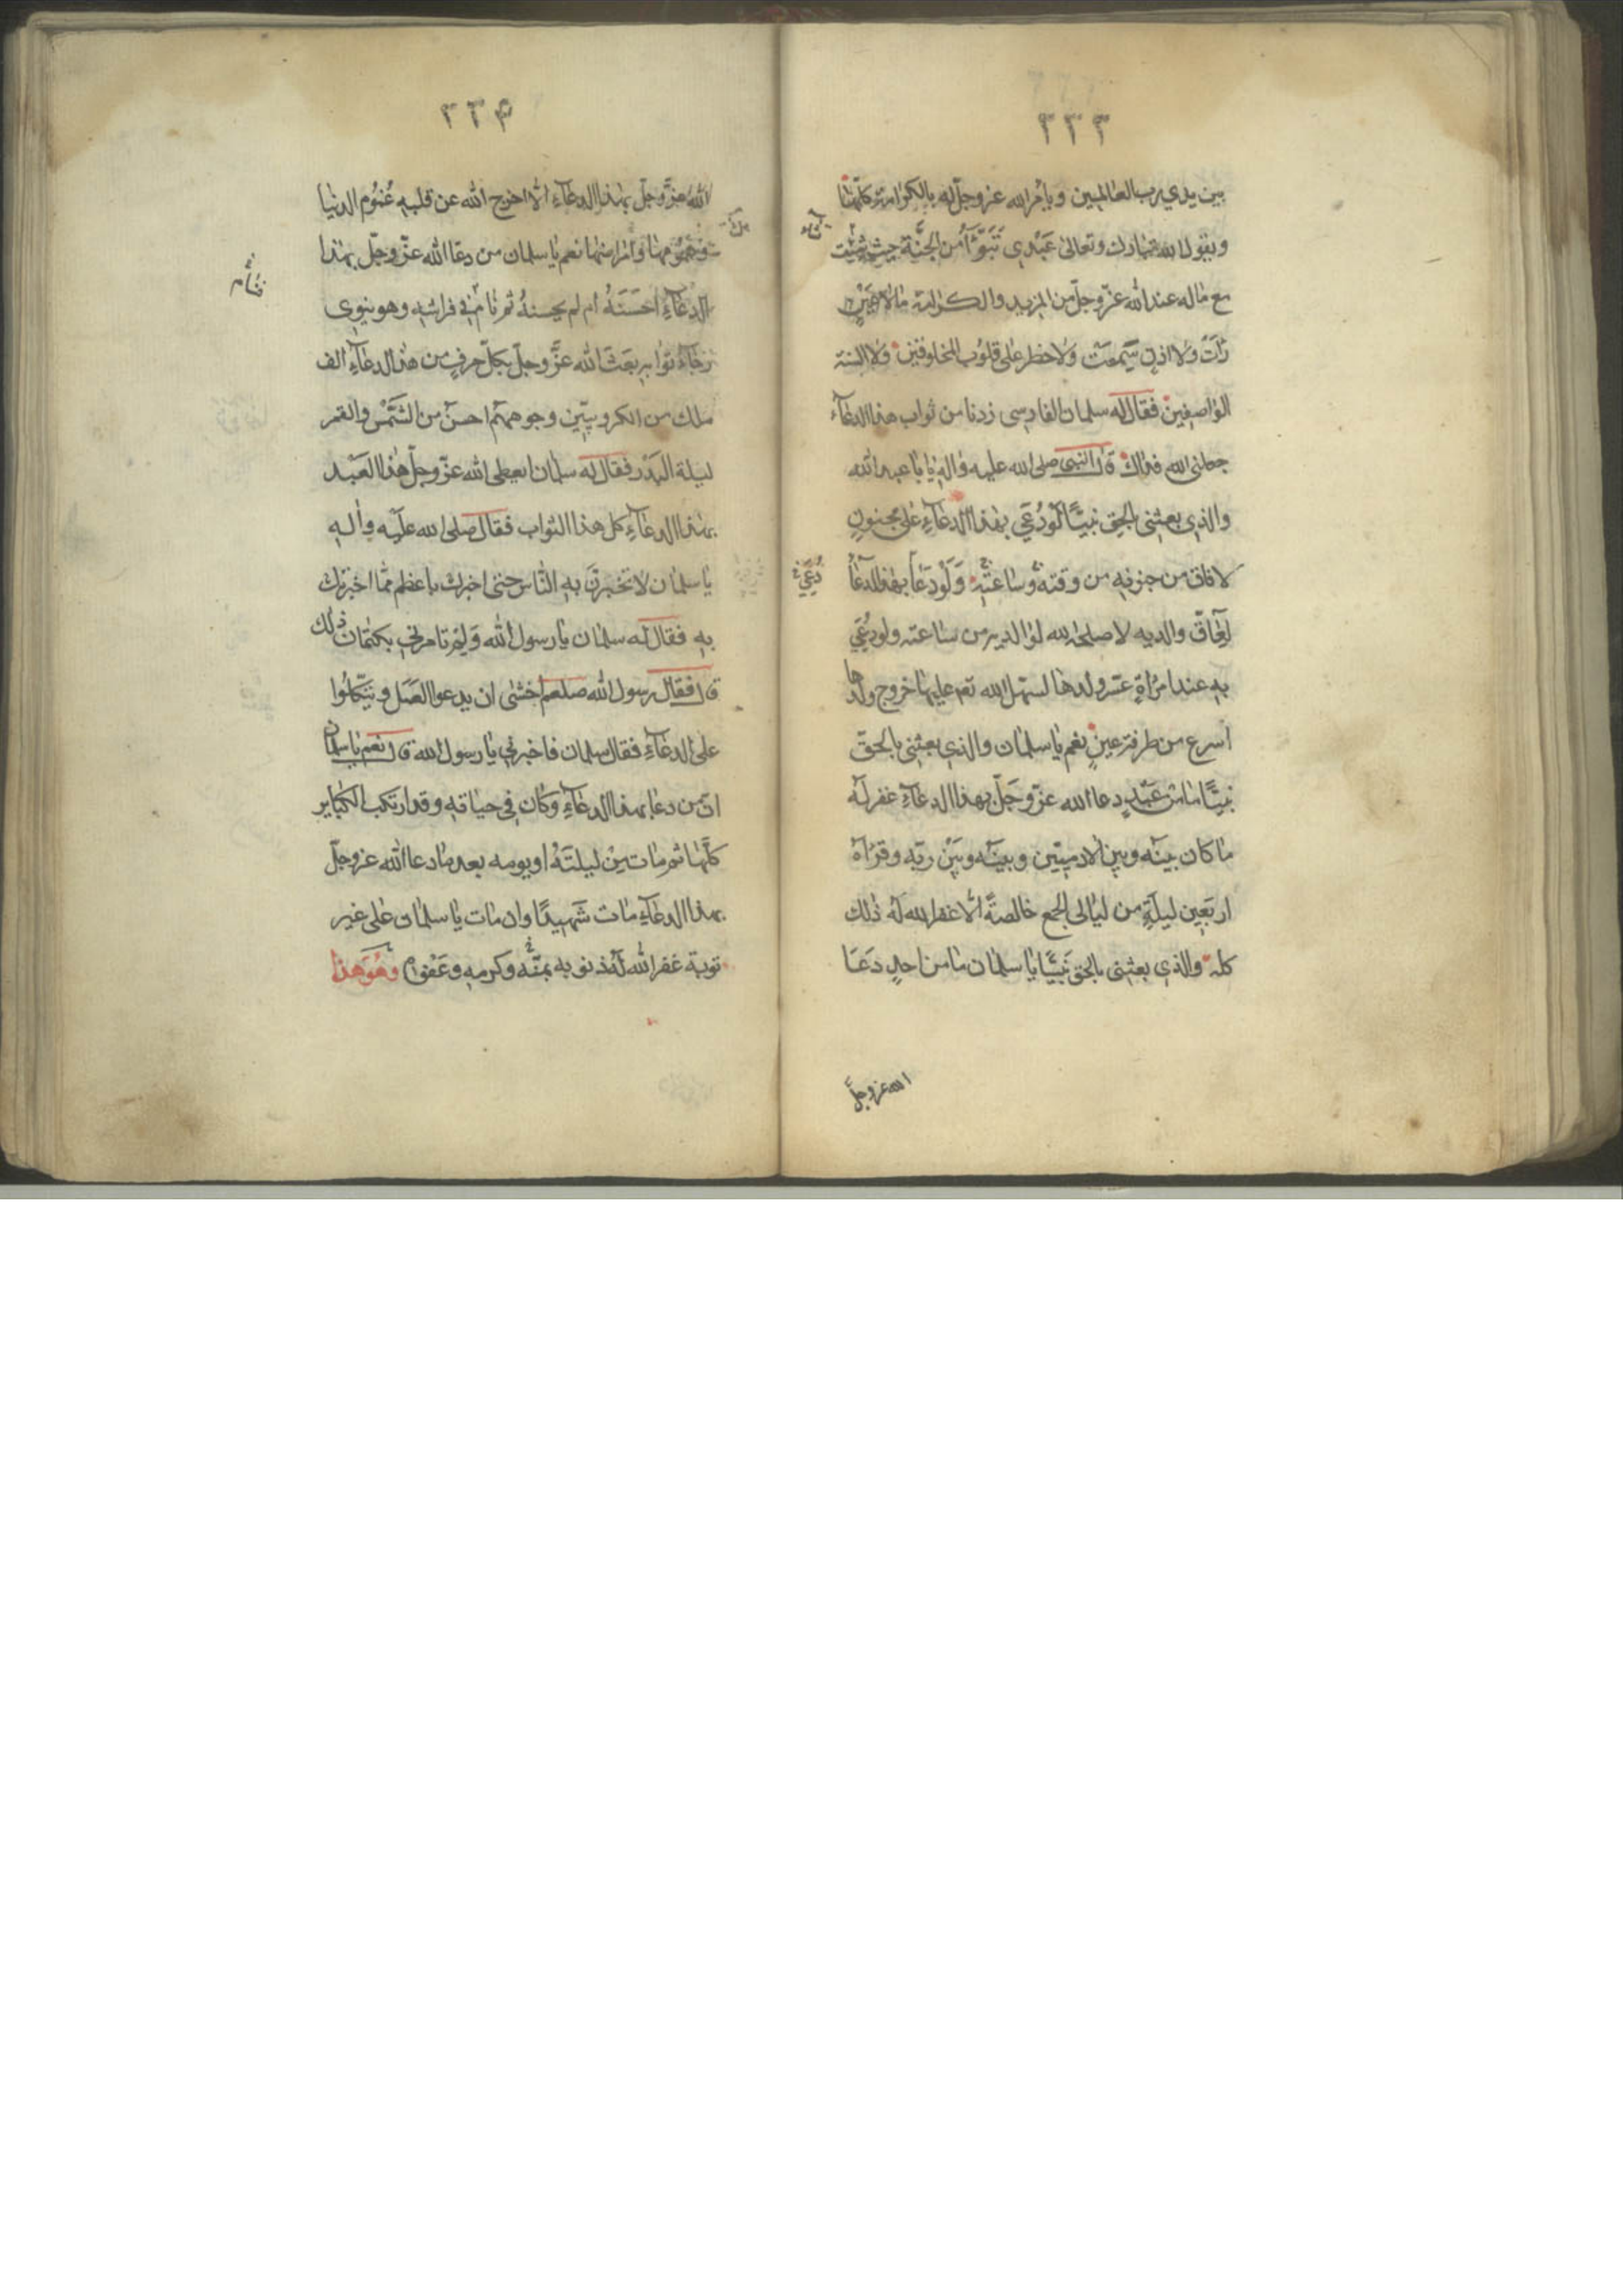 ٣٣٣
بين يدي رب العالمين ويأمر الله عز وجل له بالكرامة كلّها
ويقول الله تبارك وتعالى عَبْدي تَبَوَّأ من الجنّة حيث شئت
مع ماله عند الله عزّ وجلّ من المزيد والكرامة ما لا عَيْنٌ
رَأَتْ ولا اذن سَمِعَت ولا خطر على قلوب المخلوقين ولا السنة
الواصفين فقال له سلمان الفارسى زدنا من ثواب هذا الدعاء
جعلني الله فداك قال النبى صلى الله عليه واله يا ابا عبد الله
والذي بعثني بالحق نبيًّا لَوْ دُعِيَ بهذا الدعاءِ على مجنونٍ
لافاق من جنونه من وقته وساعتهِ وَلَوْ دَعَا بهذا الدعاءُ
دُعِيَ خ
لِعَاقّ والديه لاصلحه الله لوالديه من ساعته ولو دُعِيَ
بهِ عند امرَاةٍ عسر ولدها لسهل الله تعم عليها خروج ولدها
اسرع من طرفة عينٍ نعم يا سلمان والذي بعثني بالحقّ
نبيًّا ما من عَبْدٍ دعا الله عزّ وجَلّ بهذا الدعاءِ غفر له
ما كان بينَه وبين الادميّين وبينَه وبَيْن ربّه وقرَاهُ
اربَعِين ليلَةٍ من ليالى الجمع خالصةً الّا غفر الله لَه ذلك
كله والذي بعثني بالحق نَبيًّا يا سلمان ما من احدٍ دَعَا
الله عز وجلّ
٣٣۴
الله عزّ وجلّ بهذا الدعاءِ الّا اخرج الله عن قلبهِ غُمُوم الدنيا
وهُمُومها وامراضها نعم يا سلمان من دعَا الله عزّ وجلّ بهذا
الدعاءِ اَحسَنَهُ ام لم يحسنهُ ثم نام في فراشهِ وهو ينوى
رجاءَ ثوابه بَعَثَ الله عزَّ وجلّ بكلّ حرفٍ من هذا الدعاءِ الف
ملك من الكروبيّين وجوههم احسن من الشَمْس والقمر
ليلة البَدْر فقال له سلمان ايعطى الله عزّ وجلّ هذا العَبْد
بهذا الدعاءِ كل هذا الثواب فقال صلى الله عليْه واله
يا سلمان لا تخبرنَّ بهِ النّاس حتى اخبرك باعظم ممّا اخبرتك
بهِ فقال له سلمان يا رسول الله وَلِمَ تامرني بكتمان ذلك
قال فقال رسول الله صلعم اخشى ان يدعوا العَمَل ويتّكلُوا
على الدعاءِ فقال سلمان فاخبرني يا رسول الله قال نعم يا سلمان
انّ من دعا بهذا الدعاءِ وكان في حياته وقد ارتكب الكبَاير
كلّها ثم مات مِنْ ليلتَهُ او يومه بعد ما دعا الله عز وجلّ
بهذا الدعاءِ مات شَهيدًا وان مات يا سلمان على غير
توبة غفر الله لَهُ ذنوبه بمَنّه وكرمهِ وعَفْوه وهُوَ هذا